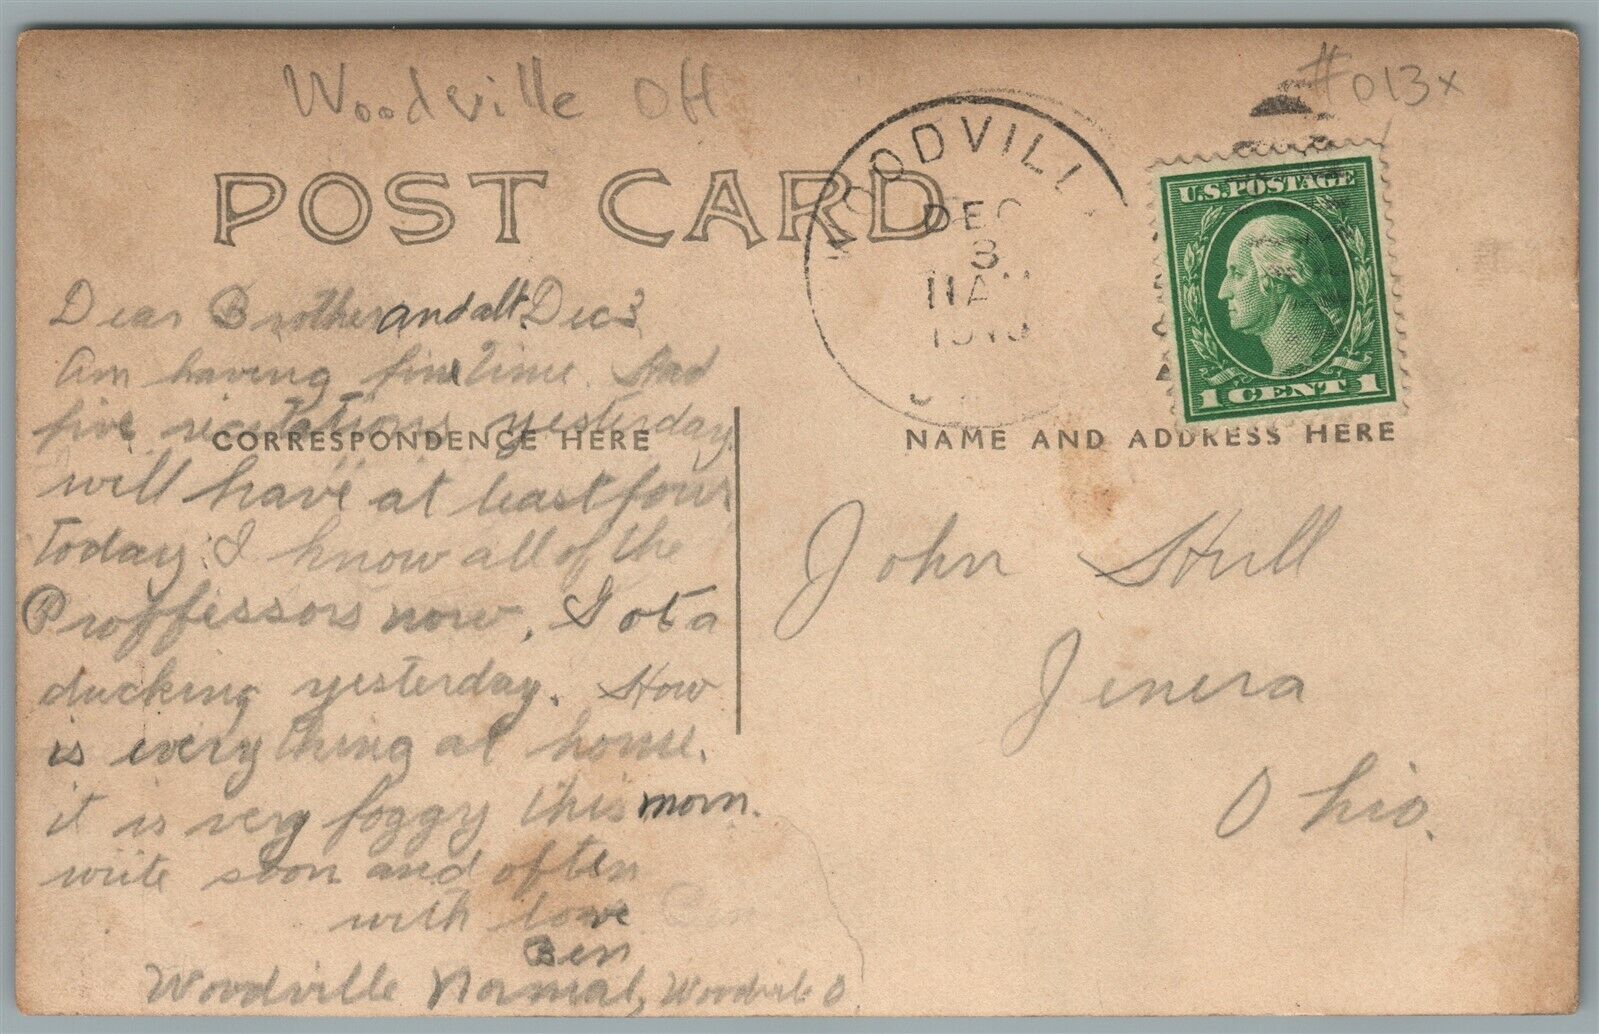 Woodville OH
#013x
POST CARD
WOODVILL
DEC
3
11 A
U.S. POSTAGE
1 CENT 1
Dear Brother and all. Dec 3
Am having fine time. Had
five recitations yesterday
CORRESPONDENCE HERE
will have at least four
today. I know all of the
Proffessors now, I ot a
ducking yesterday. How
is everything at home.
it is very foggy this morn.
write soon and often
with love
Ben
Woodville Normal, Woodville O.
NAME AND ADDRESS HERE
John Hull
Jenera
Ohio.